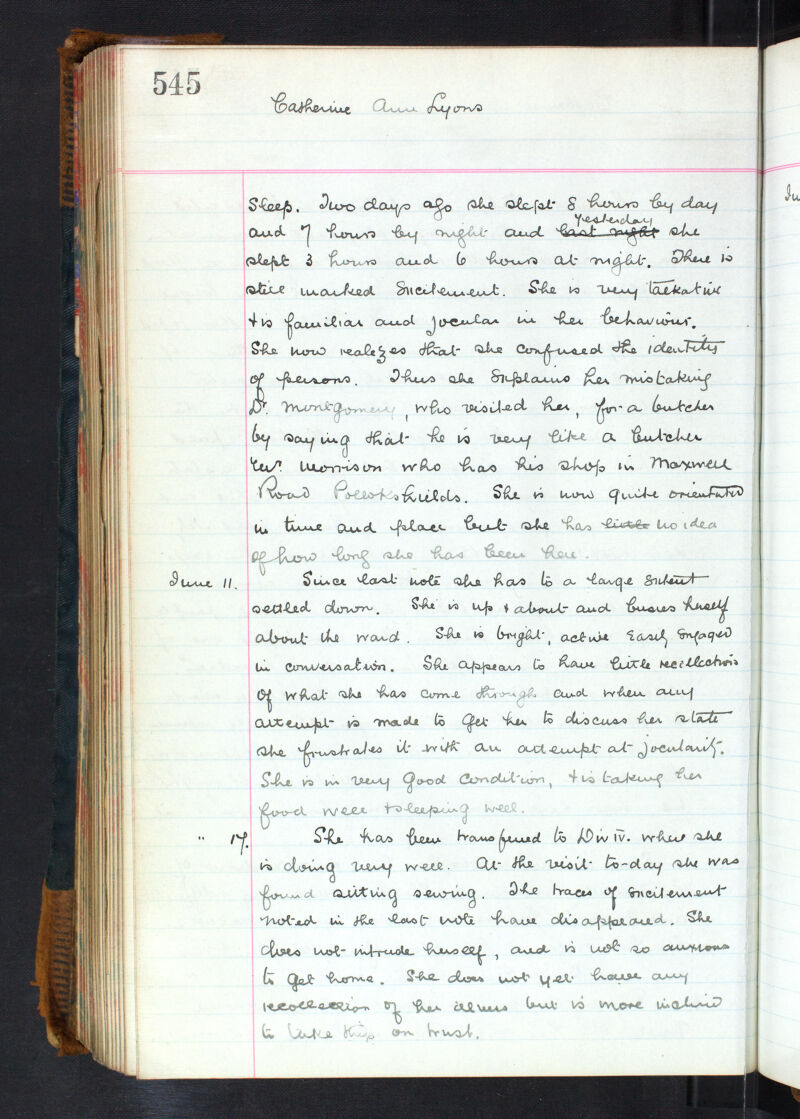 545
Catherine Ann Lyons
Sleep. Two days ago she slept 8 hours by day
and 7 hours by night and last night yesterday she
slept 3 hours and 6 hours at night. There is
still marked excitement. She is very talkative
& is familiar and jocular in her behaviour.
She now realizes that she confused the identity
of persons. Thus she explains her mistaking
Dr. Montgomery, who visited her, for a butcher
by saying that he is very like a butcher
Morrison who has his shop in Maxwell
Road Pollokshields. She is now quite orientated
in time and place but she has little no idea
of how long she has been here.
June 11. Since last note she has to a large extent
settled down. She is up & about and busies herself
about the ward. She is bright, active easily engaged
in conversation. She appears to have little recollections
of what she has come through and when any
attempt is made to get her to discuss her state
she frustrates it with an attempt at jocularity.
She is in very good condition, & is taking her
food well & sleeping well.
" 17. She has been transferred to Div IV. where she
is doing very well. At the visit to-day she was
found sitting sewing. The traces of excitement
noted in the last note have disappeared. She
does not intrude herself, and is not so anxious
to get home. She does not yet have any
recollection of her illness but is more inclined
to take this on trust.